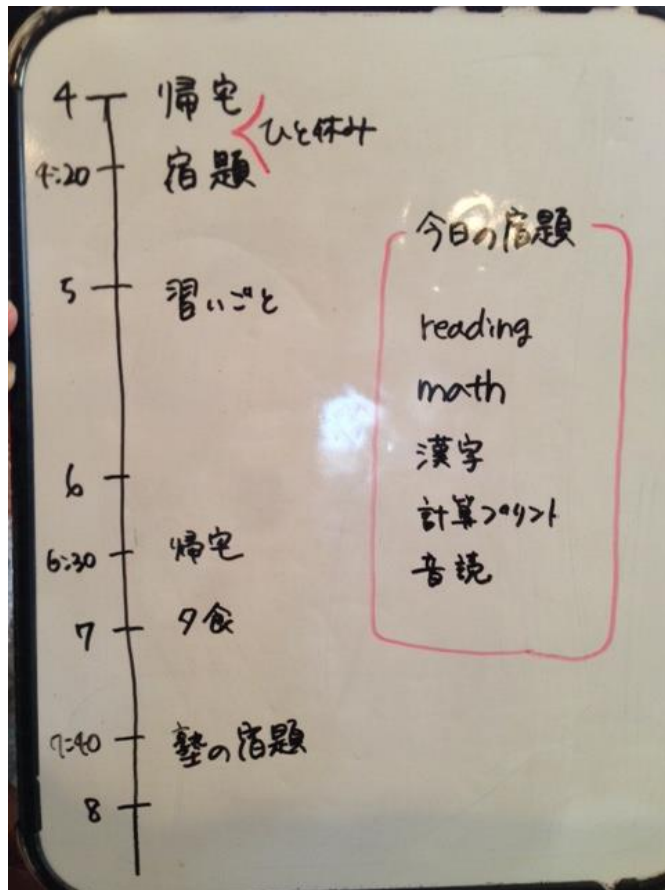 4 帰宅
ひと休み
4:20 宿題
5 習いごと
6
6:30 帰宅
7 夕食
7:40 塾の宿題
8
今日の宿題
reading
math
漢字
計算プリント
音読